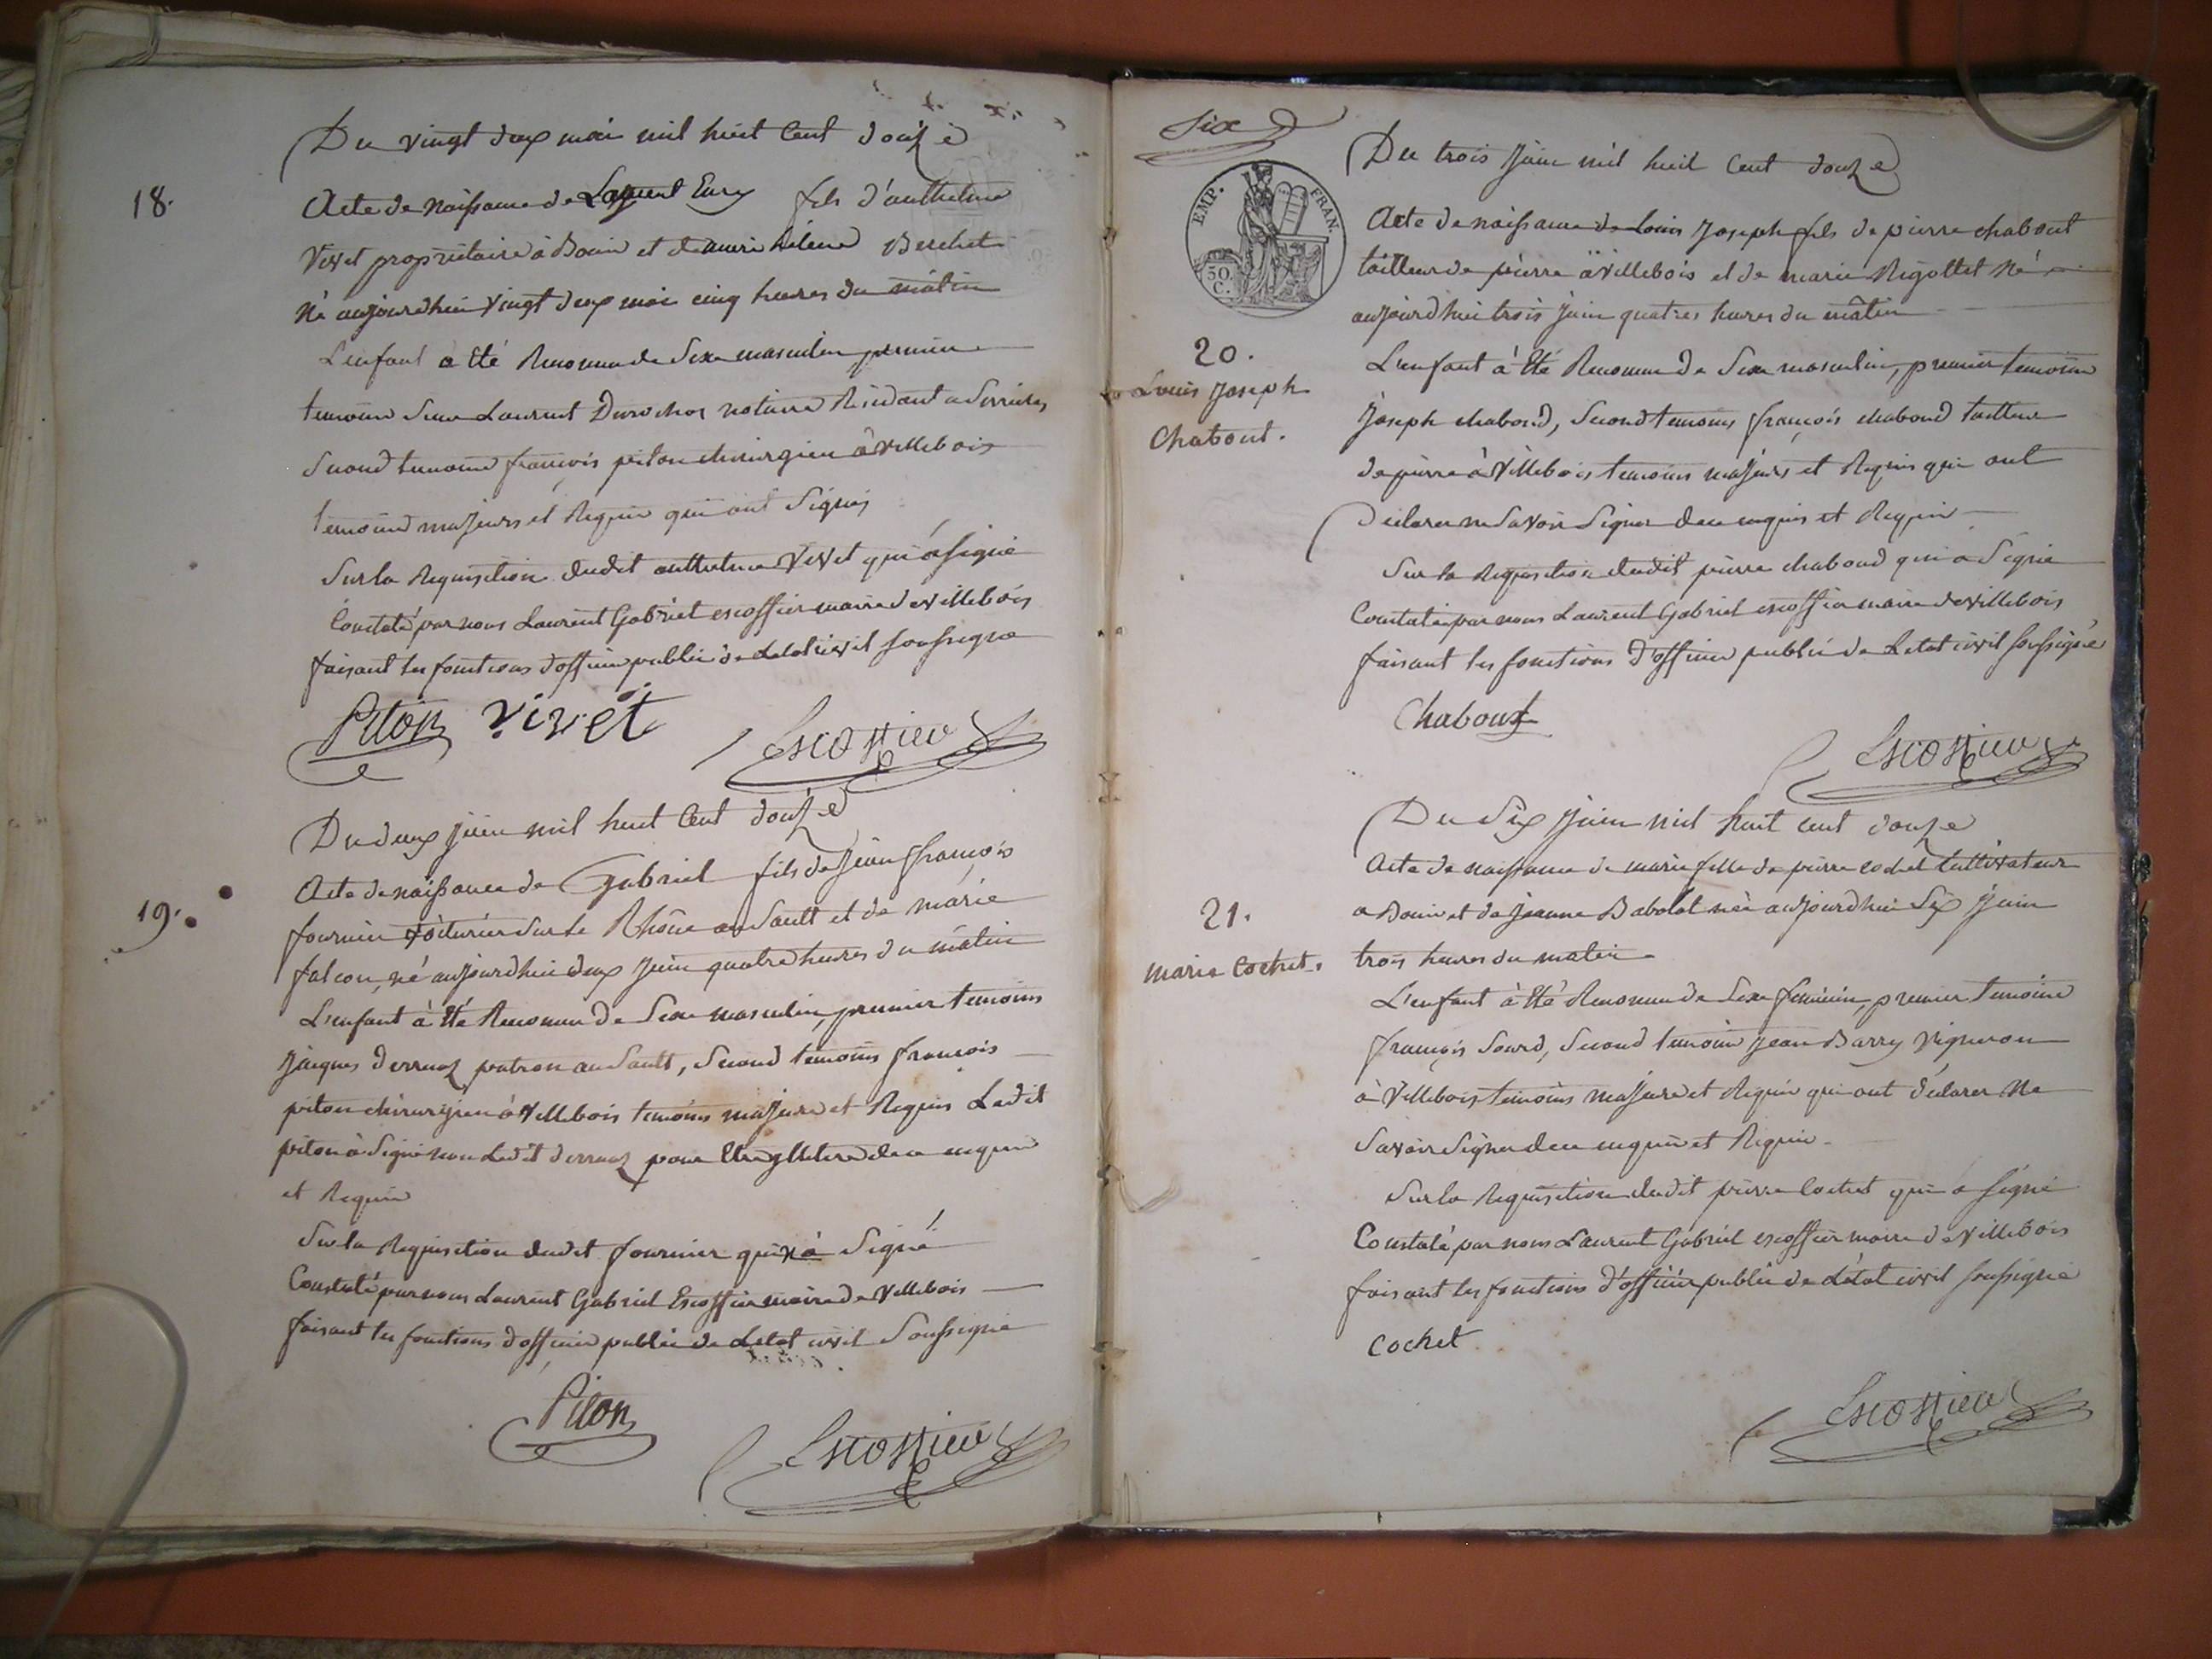 Du vingt deux mai mil huit cent douze
18.
Acte de naissance de Laurent Eury fils d'anthelme
Vivet propriétaire à Bouis et de marie helene Berchet
né aujourdhui vingt deux mai cinq heures du matin
L'enfant à été Reconnu de Sexe masculin premier
temoin Sieur Laurent Durochat notaire Résidant a Serrieres
Second temoin françois piton chirurgien à Villebois
temoins majeurs et Requis qui ont Signés
Sur la Requisition dudit anthelme Vivet qui à signé
Constaté par nous Laurent Gabriel escoffier maire de villebois
faisant les fonctions d'officier public de Letat civil soussigné
Piton Vivet
Escoffier
Du deux juin mil huit Cent douze
19.
Acte de naissance de Gabriel fils de jean françois
fournier voiturier sur le Rhône au Sault et de marie
falcon, né aujourdhui deux juin quatre heures du matin
L'enfant à été Reconnu de Sexe masculin, premier temoins
jacques derruaz patron au Sault, Second temoins françois
piton chirurgien à Villebois temoins majeurs et Requis Ledit
piton à Signé non Ledit derruaz pour être illiteré de ce enquis
et Requis
Sur la Requisition dudit fournier qui à Signé
Constaté par nous Laurent Gabriel Escoffier maire de Villebois
faisant les fonctions d'officier public de Letat civil Soussigné
Piton
Escoffier
Six
EMP. FRAN.
50 C.
Du trois Juin mil huit Cent douze
Acte de naissance de Louis Joseph fils de pierre chabout
tailleur de pierre à Villebois et de marie Rigottet né
aujourdhui trois juin quatres heures du matin
20.
Louis Joseph
Chabout.
L'enfant à été Reconnu de Sexe masculin, premier temoin
Joseph chaboud, Second temoins françois chaboud tailleur
de pierre à Villebois temoins majeurs et Requis qui ont
Déclarer ne Savoir Signer de ce enquis et Requis
Sur la Requisition dudit pierre chaboud qui à Signé
Constaté par nous Laurent Gabriel escoffier maire de Villebois
faisant les fonctions d'officier public de Letat civil soussigné
Chabout
Escoffier
Du Six Juin mil huit cent douze
Acte de naissance de marie fille de pierre cochet Cultivateur
21.
a Bouis et de jeanne Babolat née aujourdhui Six juin
marie Cochet.
trois heures du matin
L'enfant à été Reconnu de Sexe feminin, premier temoins
françois Sourd, Second temoin jean Barry Vigneron
à Villebois temoins majeurs et Requis qui ont déclarer ne
Savoir Signer de ce enquis et Requis
Sur la Requisition dudit pierre Cochet qui à signé
Constaté par nous Laurent Gabriel escoffier maire de Villebois
faisant les fonctions d'officier public de L'état civil soussigné
cochet
Escoffier